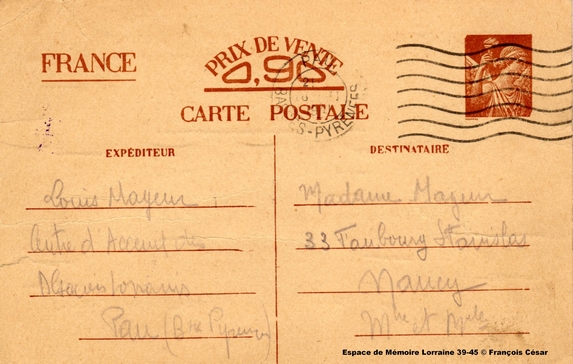 FRANCE
PRIX DE VENTE
0,90
CARTE POSTALE
BASSES-PYRENEES
EXPÉDITEUR
Louis Mayeur
Centre d'Accueil
Pau (Bses Pyrenees)
DESTINATAIRE
Madame Mayeur
33 Faubourg Stanislas
Nancy
Mthe et Mlle
Espace de Mémoire Lorraine 39-45 © François César